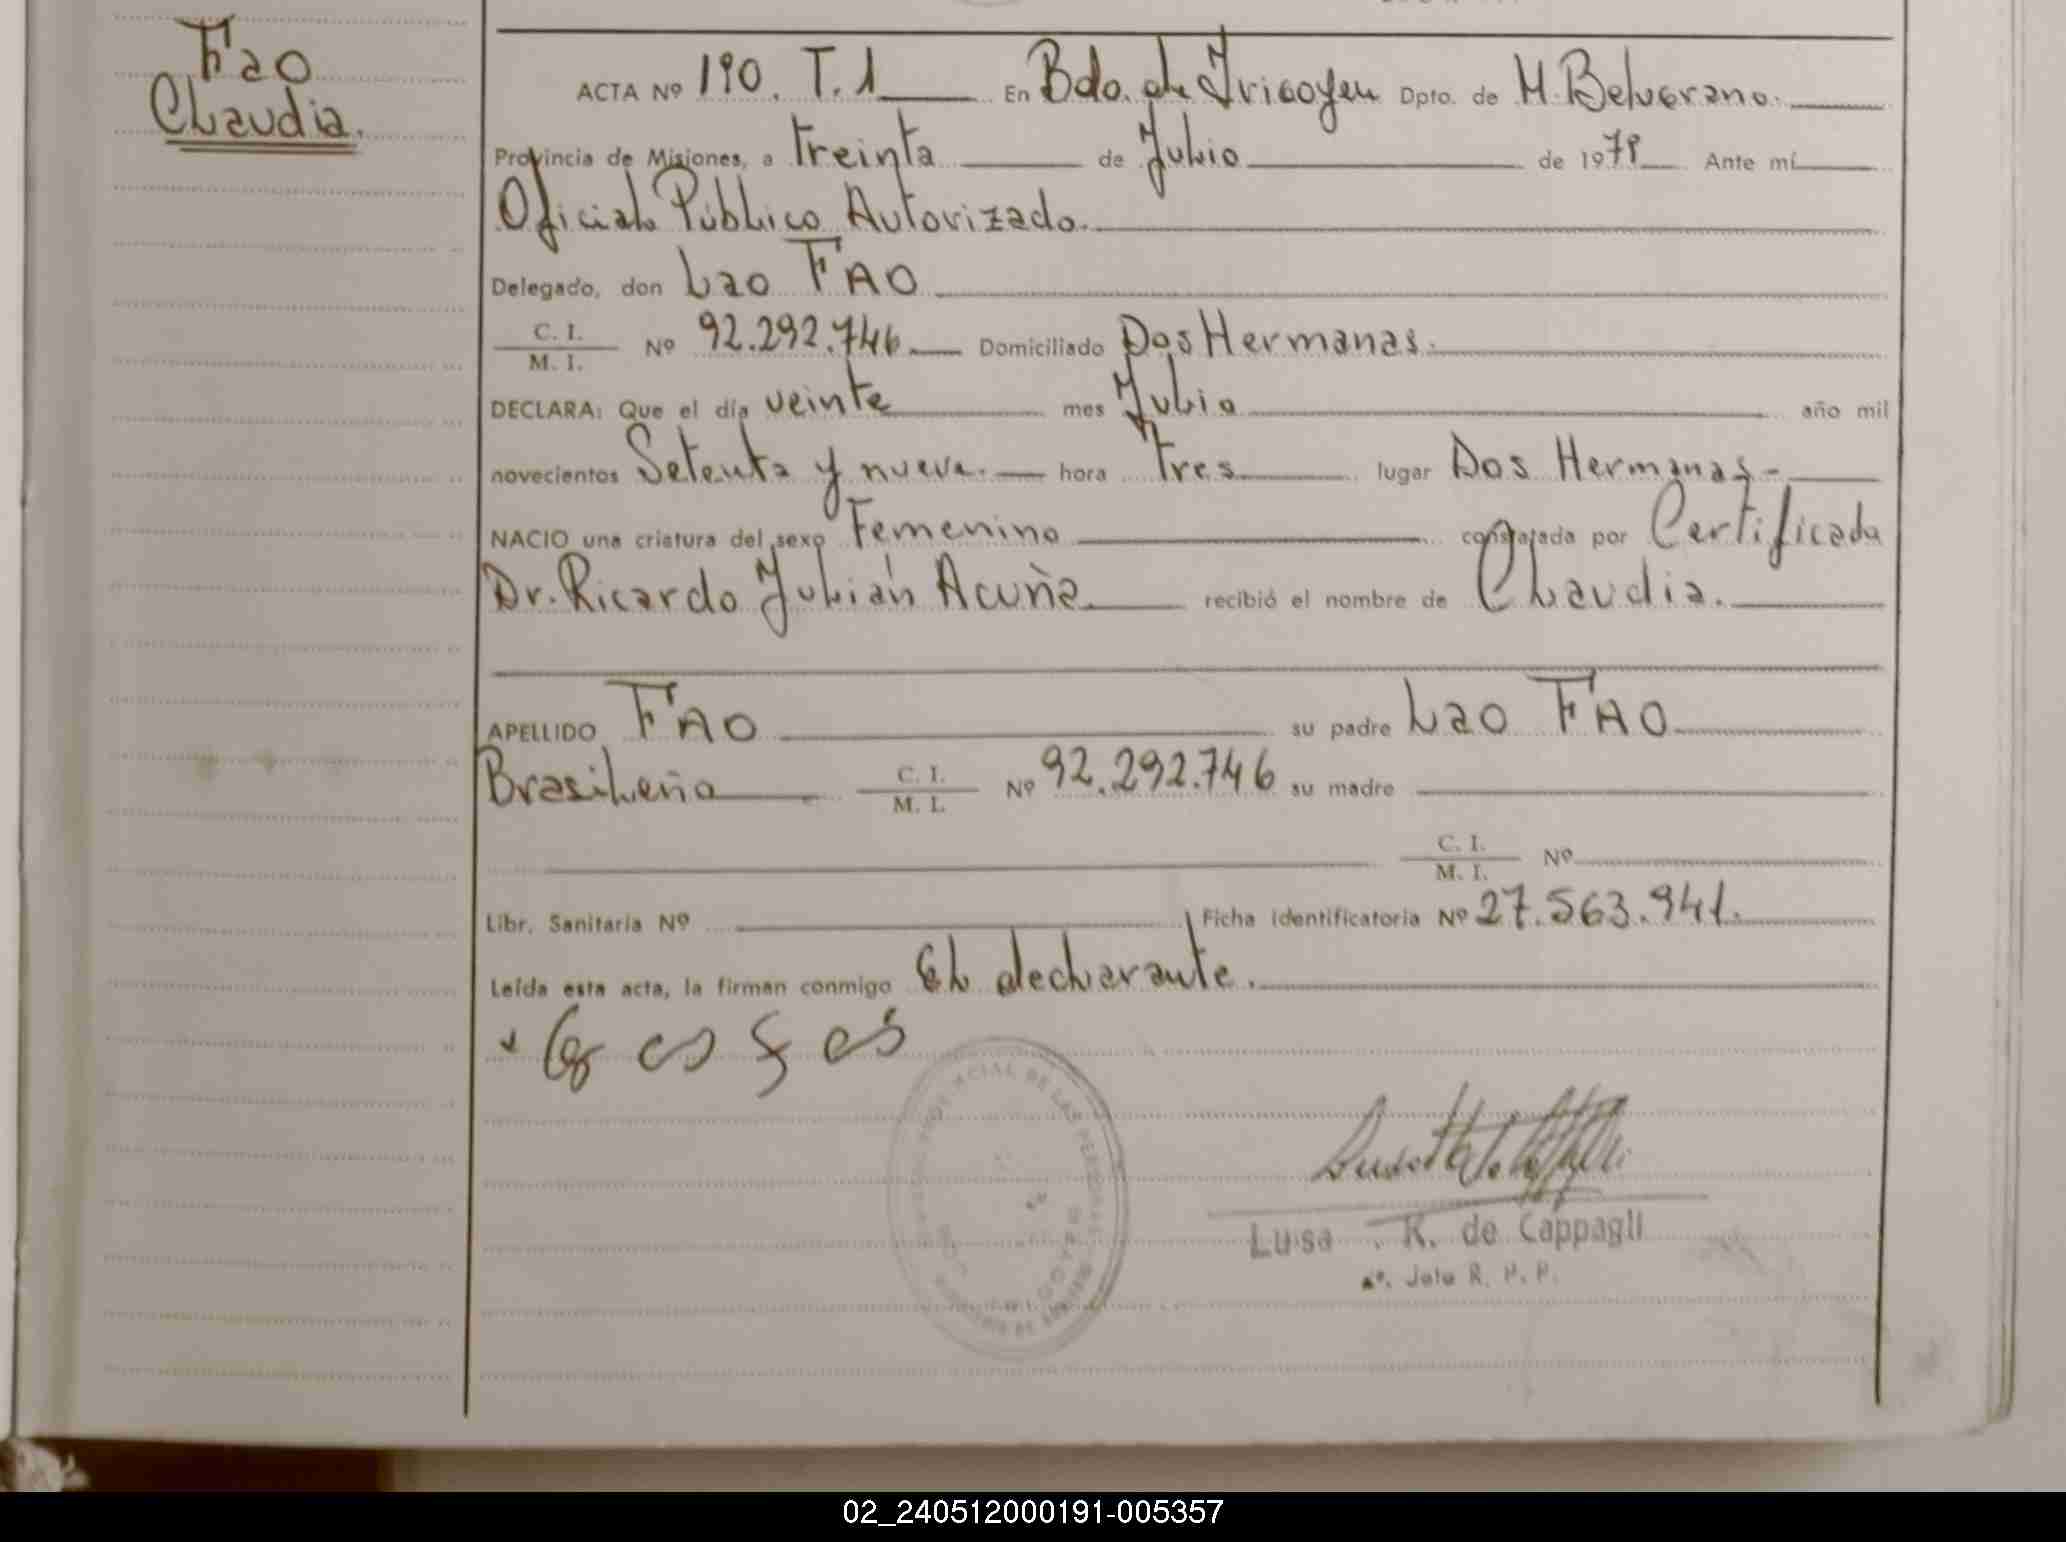 Fao
Claudia.
ACTA Nº 190. T. 1 En Bdo. de Irigoyen Dpto. de M. Belgrano.
Provincia de Misiones, a treinta de Julio de 1979 Ante mí
Oficial Público Autorizado.
Delegado, don Lao FAO
C. I.
M. I. Nº 92.292.746. Domiciliado Dos Hermanas.
DECLARA: Que el día veinte mes Julio año mil
novecientos Setenta y nueve. hora tres lugar Dos Hermanas-
NACIO una criatura del sexo Femenino constatada por Certificado
Dr. Ricardo Julián Acuña recibió el nombre de Claudia.
APELLIDO FAO su padre Lao FAO
Brasileño C. I.
M. I. Nº 92.292.746 su madre
C. I.
M. I. Nº
Libr. Sanitaria Nº Ficha identificatoria Nº 27.563.941.
Leída esta acta, la firman conmigo El declarante.
CIAL DE LAS PERSONAS
Luisa K. de Cappagli
Jefe R. P. P.
02_240512000191-005357